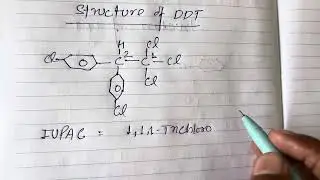 Structure of DDT
H Cl
Cl C² C¹ Cl
Cl
Cl
IUPAC = 1,1,1-Trichloro